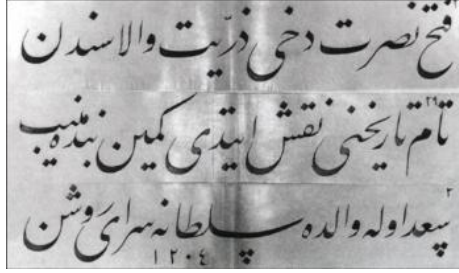 فتح نصرت دخی ذریّت والاسندن
تام تاریخنی نقش ایتدی كمین بنده منیب
سعد اوله والده سلطانه سرای روشن
١٢٠٤